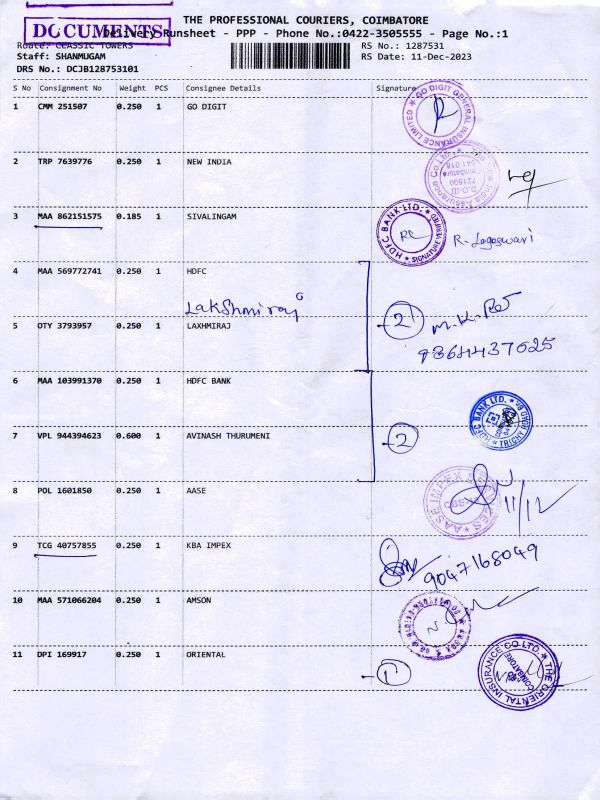 THE PROFESSIONAL COURIERS, COIMBATORE
DOCUMENTS
Delivery Runsheet - PPP - Phone No.:0422-3505555 - Page No.:1
Route: CLASSIC TOWERS
RS No.: 1287531
Staff: SHANMUGAM
RS Date: 11-Dec-2023
DRS No.: DCJB128753101
S No Consignment No Weight PCS Consignee Details Signature
1 CMM 251507 0.250 1 GO DIGIT
GO DIGIT GENERAL INSURANCE LIMITED
2 TRP 7639776 0.250 1 NEW INDIA
India Assurance Co. Ltd.
D.O-III
721500
Coimbatore
641 018
3 MAA 862151575 0.185 1 SIVALINGAM
HDFC BANK LTD. SIGNATURE VERIFIED
R. Logeswari
4 MAA 569772741 0.250 1 HDFC
Lakshmiraj
2
9364437625
5 OTY 3793957 0.250 1 LAXHMIRAJ
6 MAA 103991370 0.250 1 HDFC BANK
HDFC BANK LTD. TRICHY ROAD BR.
7 VPL 944394623 0.600 1 AVINASH THURUMENI
2
8 POL 1601850 0.250 1 AASE
AASE IMPEX
11/12
9 TCG 40757855 0.250 1 KBA IMPEX
9047168049
10 MAA 571066204 0.250 1 AMSON
11 DPI 169917 0.250 1 ORIENTAL
1
THE ORIENTAL INSURANCE CO LTD.
COIMBATORE